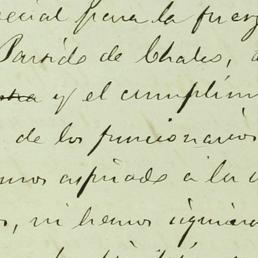 ecial para la fuerz
Partido de Chales,
y el cumplim
de los funcionarios
mos aspirado a la
s, ni hemos siquiera